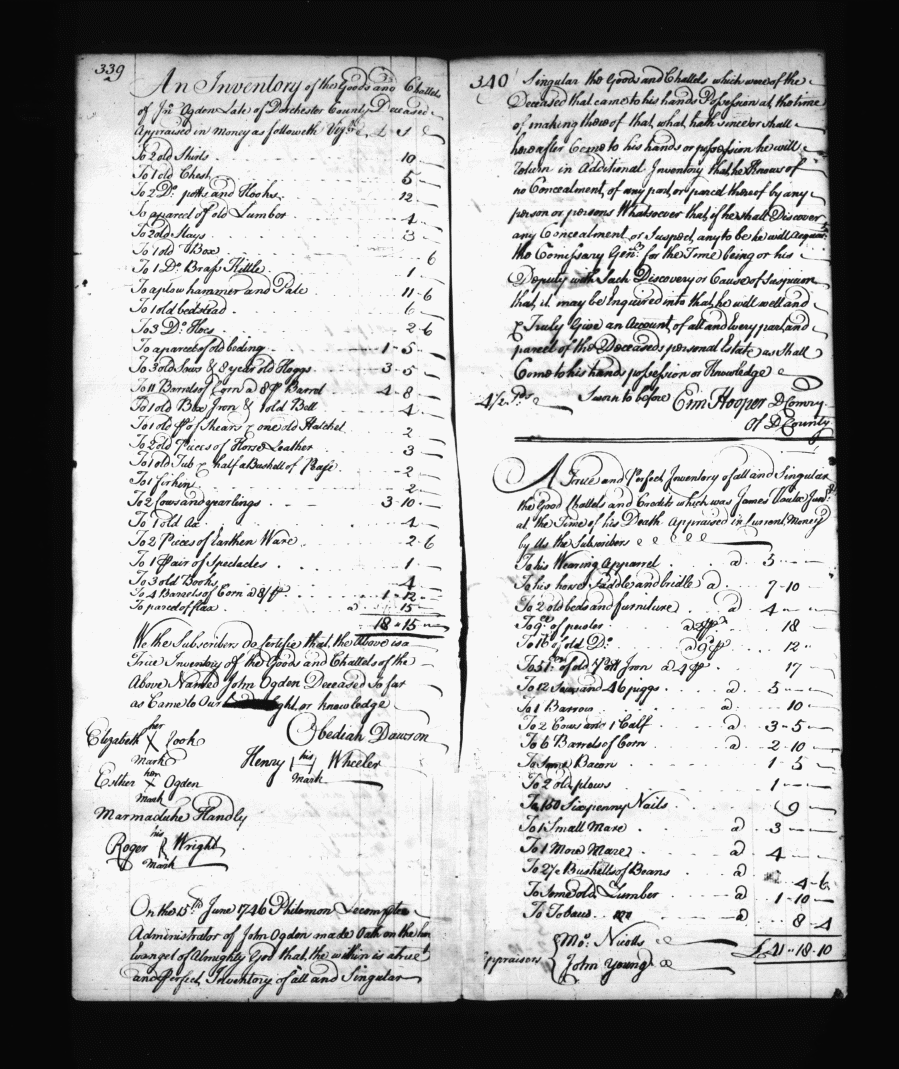 339
An Inventory of the Goods and Chattels
of Jno Ogden Late of Dorchester County Deceased
Appraised in money as followeth Vizt £ S
To 2 old Shirts 10 -
To 1 old Chest 5 -
To 2 Do potts and Hooks 12 -
To a parcel of old Lumber 4 -
To 2 old Stays 3 -
To 1 old Box 6
To 1 Do Brass Kittle 1 -
To a plow hammer and Pale 11 - 6
To 1 old bedstead 6 -
To 3 Do Hoes 2 - 6
To a parcel of old beding 1 - 5 -
To 3 old Sows & 8 year old Hoggs 3 - 5 -
To 11 Barrels of Corn a 8/ p Barrel 4 - 8
To 1 old Box Iron & 1 old Bell 4 -
To 1 old pr of Shears & one old Hatchel 2
To 2 old Pieces of Horse Leather 3 -
To 1 old Tub & half a Bushell of 2 -
To 1 firkin 2 -
To 2 Cows and yearlings 3 - 10 -
To 1 old Ax 4 -
To 2 Pieces of Earthen Ware 2 - 6
To 1 Pair of Spectacles 1 -
To 3 old Books 4
To 4 Barrels of Corn a 8/ p 1 - 12 -
To parcel of flax a 15 -
18 - 15 -
We the Subscribers do Certifie that the Above is a
True Inventory of the Goods and Chattels of the
Above Named John Ogden Deceased So far
as Came to Our Sight or knowledge
her
Elizabeth X Cook Obediah Dawson
mark
his
Henry H Wheeler
mark
her
Esther X Ogden
mark
Marmaduke Handly
his
Roger R Wright
mark
On the 15th June 1746 Philemon Lecompte
Administrator of John Ogden made Oath on the holy
Evangel of Almighty God that the within is a true
and Perfect Inventory of all and Singular
340
Singular the Goods and Chattels which were of the
Deceased that came to his hands Possession at the time
of making thereof that what hath since or shall
hereafter Come to his hands or possession he will
Return in Additional Inventory that he Knows of
no Concealment of any part or parcel thereof by any
person or persons Whatsoever that if he shall Discover
any Concealment or Suspect any to be he will Acquaint
the Comissary Genl for the Time being or his
Deputy with Such Discovery or Cause of Suspicion
that it may be Inquired into that he will well and
& Truly Give an Account of all and Every part and
parcel of the Deceaseds personal Estate as Shall
Come to his hands possession or Knowledge
4 1/2 Ps Sworn to before Em Hooper D Comry
Of D County
A True and Perfect Inventory of all and Singular
the Good Chattels and Credits which was James
at the Time of his Death Appraised in Current Money
by Us the Subscribers
To his Wearing Apparrel a 3 -
To his horse Saddle and bridle a 7 - 10
To 2 old beds and furniture a 4 -
To 9 lb of pewter 18
To 16 lb of old Do a 9d p 12
To 51 lb of old Pott Iron a 4 p 17
To 12 Sows and 46 piggs a 5 -
To 1 Barrow 10 -
To 2 Cows and 1 Calf a 3 - 5 -
To 6 Barrels of Corn a 2 - 10
To Some Bacon 1 - 5
To 2 old plows 1 -
To 150 Sixpenny Nails 9 -
To 1 Small Mare a 3 -
To 1 More Mare a 4 -
To 2 1/2 Bushells of Beans a 4 - 6
To Some old Lumber a 1 - 10 -
To Tobaco a 8 - 4
£41 - 18 - 10
Appraisors
Mo. Nicolls
John Young